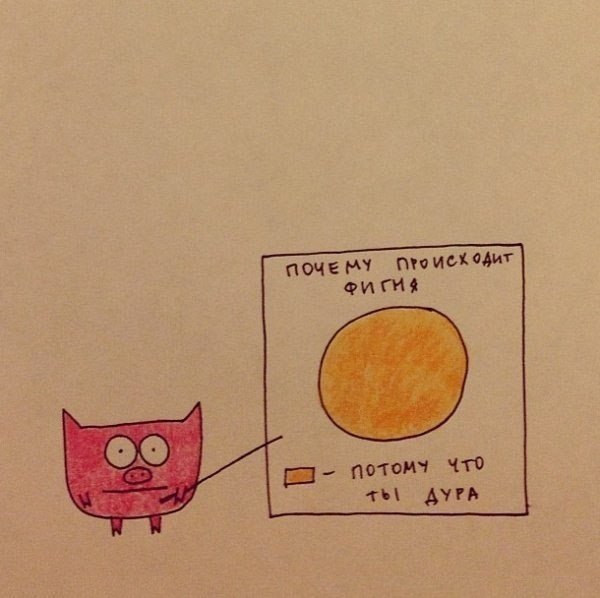 ПОЧЕМУ ПРОИСХОДИТ
ФИГНЯ
– ПОТОМУ ЧТО
ТЫ ДУРА